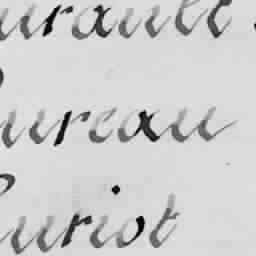 urault
ureau
uriot